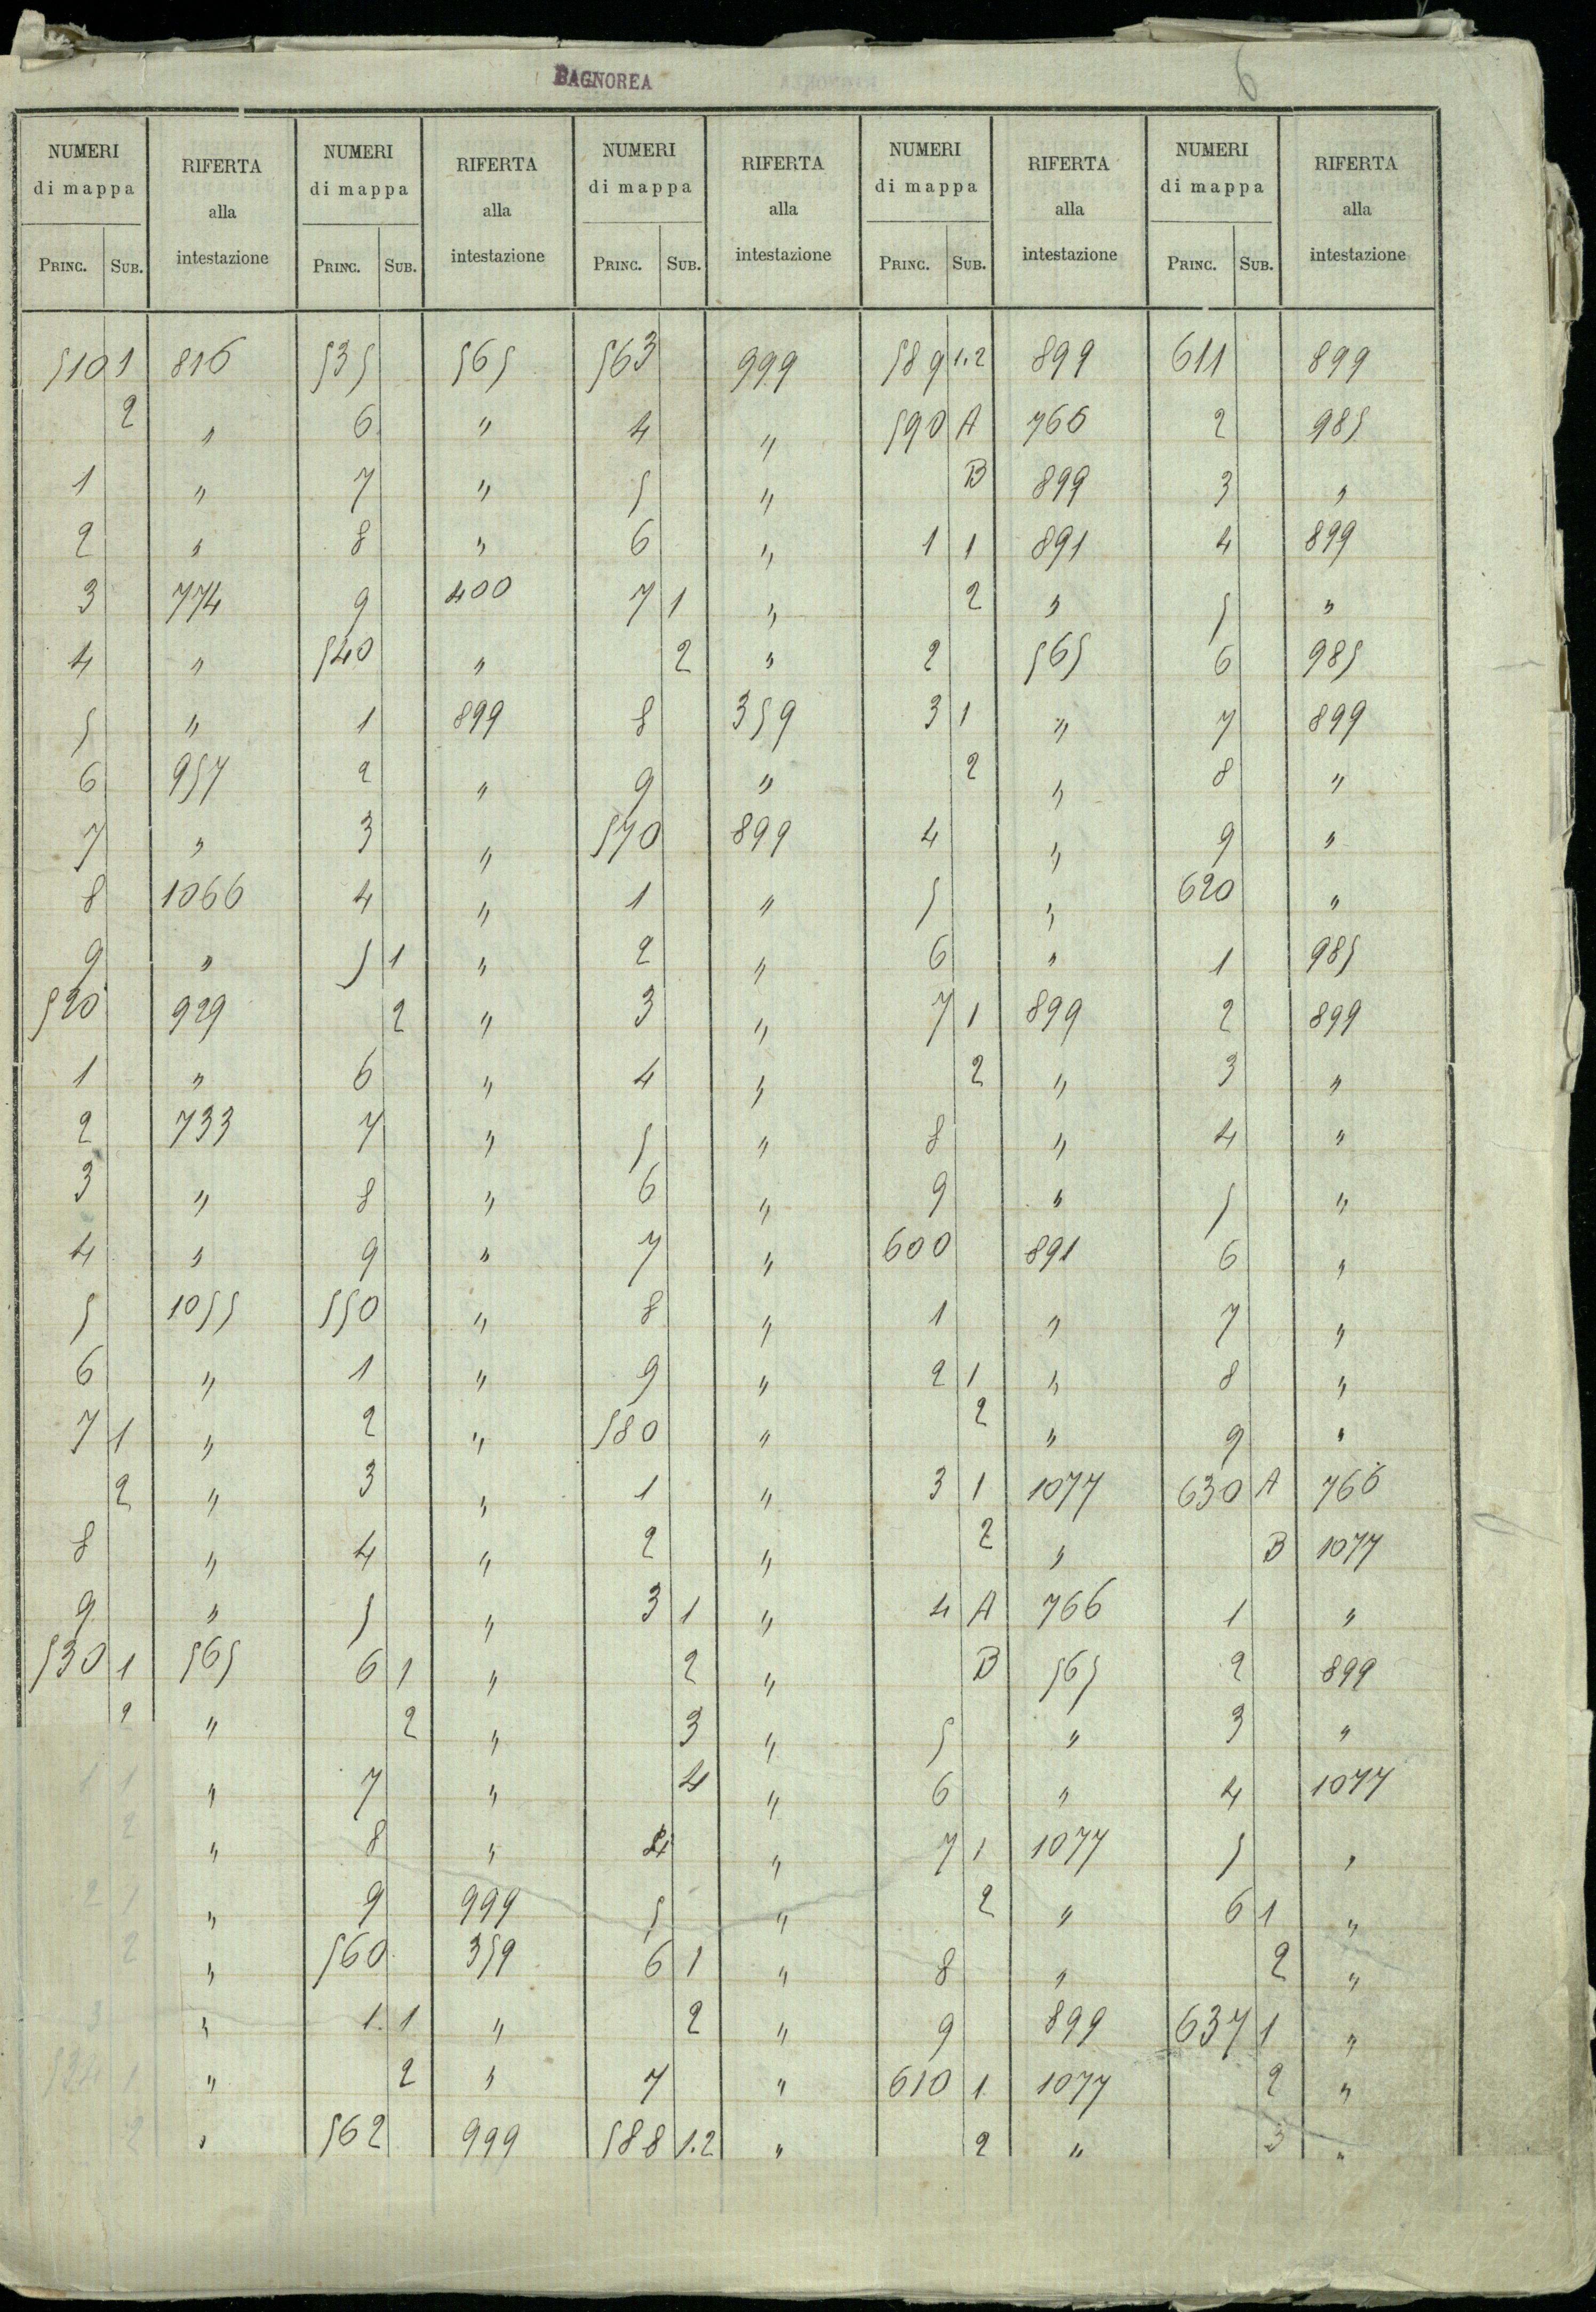 BAGNOREA 6
NUMERI di mappa RIFERTA alla intestazione NUMERI di mappa RIFERTA alla intestazione NUMERI di mappa RIFERTA alla intestazione NUMERI di mappa RIFERTA alla intestazione NUMERI di mappa RIFERTA alla intestazione
PRINC. SUB. PRINC. SUB. PRINC. SUB. PRINC. SUB. PRINC. SUB.
510 1 816 535 565 563 999 589 1.2 899 611 899
2 " 6 " 4 " 590 A 766 2 985
1 " 7 " 5 " B 899 3 "
2 " 8 " 6 " 1 1 891 4 899
3 774 9 400 7 1 " 2 " 5 "
4 " 540 " 2 " 2 565 6 985
5 " 1 899 8 359 3 1 " 7 899
6 957 2 " 9 " 2 " 8 "
7 " 3 " 570 899 4 " 9 "
8 1066 4 " 1 " 5 " 620 "
9 " 5 1 " 2 " 6 " 1 985
520 929 2 " 3 " 7 1 899 2 899
1 " 6 " 4 " 2 " 3 "
2 733 7 " 5 " 8 " 4 "
3 " 8 " 6 " 9 " 5 "
4 " 9 " 7 " 600 891 6 "
5 1055 550 " 8 " 1 " 7 "
6 " 1 " 9 " 2 1 " 8 "
7 1 " 2 " 580 " 2 " 9 "
2 " 3 " 1 " 3 1 1077 630 A 766
8 " 4 " 2 " 2 " B 1077
9 " 5 " 3 1 " 4 A 766 1 "
530 1 565 6 1 " 2 " B 565 2 899
2 " 2 " 3 " 5 " 3 "
1 1 " 7 " 4 " 6 " 4 1077
2 " 8 " 4 " 7 1 1077 5 "
2 1 " 9 999 5 " 2 " 6 1 "
2 " 560 359 6 1 " 8 " 2 "
3 " 1 1 " 2 " 9 899 637 1 "
534 1 " 2 " 7 " 610 1 1077 2 "
2 " 562 999 588 1.2 " 2 " 3 "